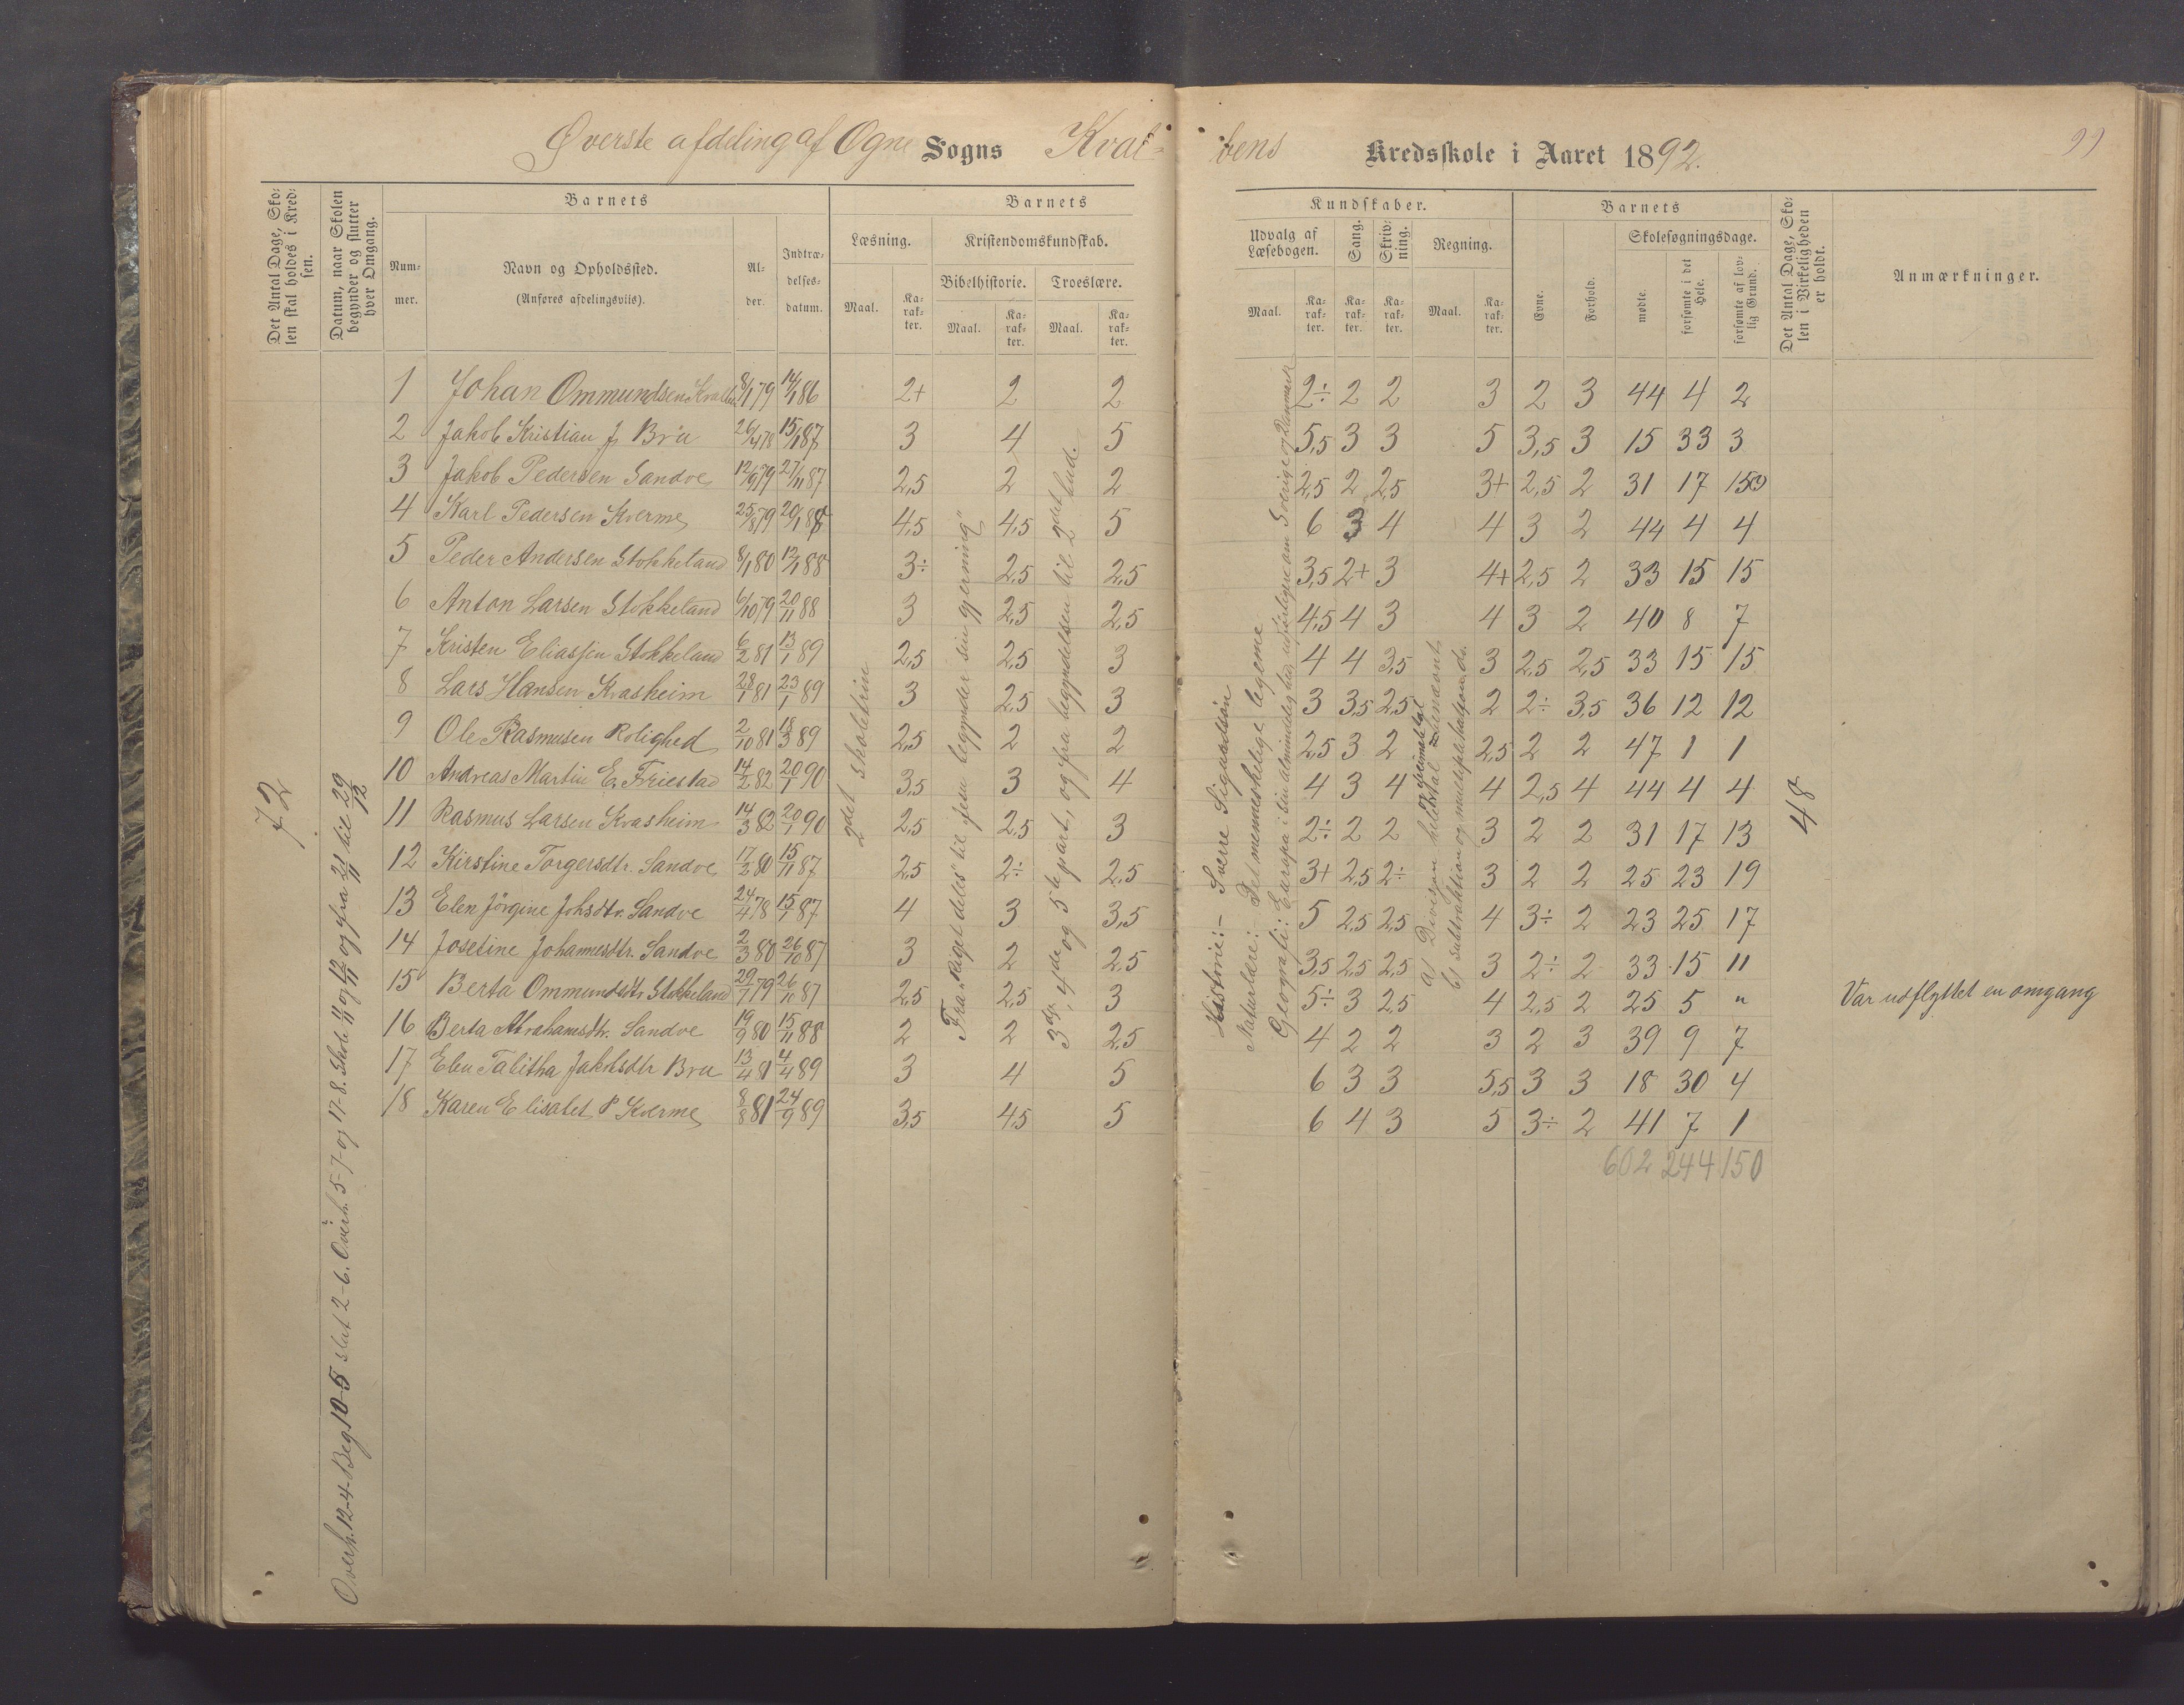 Øverste afdeling af Ogne Sogns Kval-
bens Kredsskole i Aaret 1892.
99
Det Antal Dage, Sko-
len skal holdes i Kred-
sen.
Datum, naar Skolen
begynder og slutter
hver Omgang.
Barnets
Num-
mer.
Navn og Opholdssted.
(Anføres afdelingsviis).
Al-
der.
Indtræ-
delses-
datum.
Barnets
Læsning.
Maal.
Ka-
rak-
ter.
Kristendomskundskab.
Bibelhistorie.
Maal.
Ka-
rak-
ter.
Troeslære.
Maal.
Ka-
rak-
ter.
Kundskaber.
Udvalg af
Læsebogen.
Maal.
Ka-
rak-
ter.
Sang.
Ka-
rak-
ter.
Skriv-
ning.
Ka-
rak-
ter.
Regning.
Maal.
Ka-
rak-
ter.
Barnets
Evne.
Forhold.
Skolesøgningsdage.
mødte.
forsømte i det
Hele.
forsømte af lov-
lig Grund.
Det Antal Dage, Sko-
len i Virkeligheden
er holdt.
Anmærkninger.
1 Johan Ommundsen Kvalben 8/1 79 14/1 86 2+ 2 2 2÷ 2 2 3 2 3 44 4 2
2 Jakob Kristian J. Brú 26/4 78 15/1 87 3 4 5 5,5 3 3 5 3,5 3 15 33 3
3 Jakob Pedersen Sandve 12/9 79 27/11 87 2,5 2 2 2,5 2 2,5 3+ 2,5 2 31 17 15
4 Karl Pedersen Kverme 25/8 79 20/1 88 4,5 4,5 5 6 3 4 4 3 2 44 4 4
5 Peder Andersen Stokkeland 8/1 80 12/1 88 3÷ 2,5 2,5 3,5 2+ 3 4+ 2,5 2 33 15 15
6 Anton Larsen Stokkeland 6/10 79 20/11 88 3 2,5 2,5 4,5 4 3 4 3 2 40 8 7
7 Kristen Eliassen Stokkeland 6/2 81 13/1 89 2,5 2,5 3 4 4 3,5 3 2,5 2,5 33 15 15
8 Lars Hansen Kvasheim 28/1 81 23/1 89 3 2,5 3 3 3,5 2,5 2 2÷ 3,5 36 12 12
9 Ole Rasmusen Rolighed 2/10 81 18/3 89 2,5 2 2 2,5 3 2 2,5 2 2 47 1 1
10 Andreas Martin E. Friestad 14/2 82 20/1 90 3,5 3 4 4 3 4 4 2,5 4 44 4 4
11 Rasmus Larsen Kvasheim 14/3 82 20/1 90 2,5 2,5 3 2÷ 2 2 3 2 2 31 17 13
12 Kirstine Torgersdtr. Sandve 17/2 80 15/11 87 2,5 2÷ 2,5 3+ 2,5 2÷ 3 2 2 25 23 19
13 Elen Jörgine Johsdtr. Sandve 24/4 78 15/1 87 4 3 3,5 5 2,5 2,5 4 3÷ 2 23 25 17
14 Josefine Johannesdtr. Sandve 2/3 80 26/10 87 3 2 2,5 3,5 2,5 2,5 3 2÷ 2 33 15 11
15 Berta Ommundsdtr Stokkeland 29/7 79 26/10 87 2,5 2,5 3 5÷ 3 2,5 4 2,5 2 25 5 " Var udflyttet en omgang
16 Berta Abrahamsdtr. Sandve 19/9 80 15/11 88 2 2 2,5 4 2 2 3 2 3 39 9 7
17 Elen Talitha Jakobsdtr Bru 13/4 81 4/4 89 3 4 5 6 3 3 5,5 3 3 18 30 4
18 Karen Elisabet P Kverme 8/8 81 24/9 89 3,5 4,5 5 6 4 3 5 3÷ 2 41 7 1
602 244 150
72
Overh. 12-4. Beg. 10-5 slut 2-6. Overh. 5-7 og 17-8. Skole 11/11 og 12/11 og fra 21/11 til 29/12
2det skoletrin
Fra "Riget deles" til "Jesu begynder sin gjerning"
3die, 4de og 5te part, og fra begyndelsen til 2det bud.
Historie:- Sverre Sigurdsön
Naturlære: Det menneskelige legeme
Geografi: Europa i sin almindelighed, udförligere om Sverige og Danmark
a) Division heltal Decimaltal
b) subtraktion og multiplikasjon
48